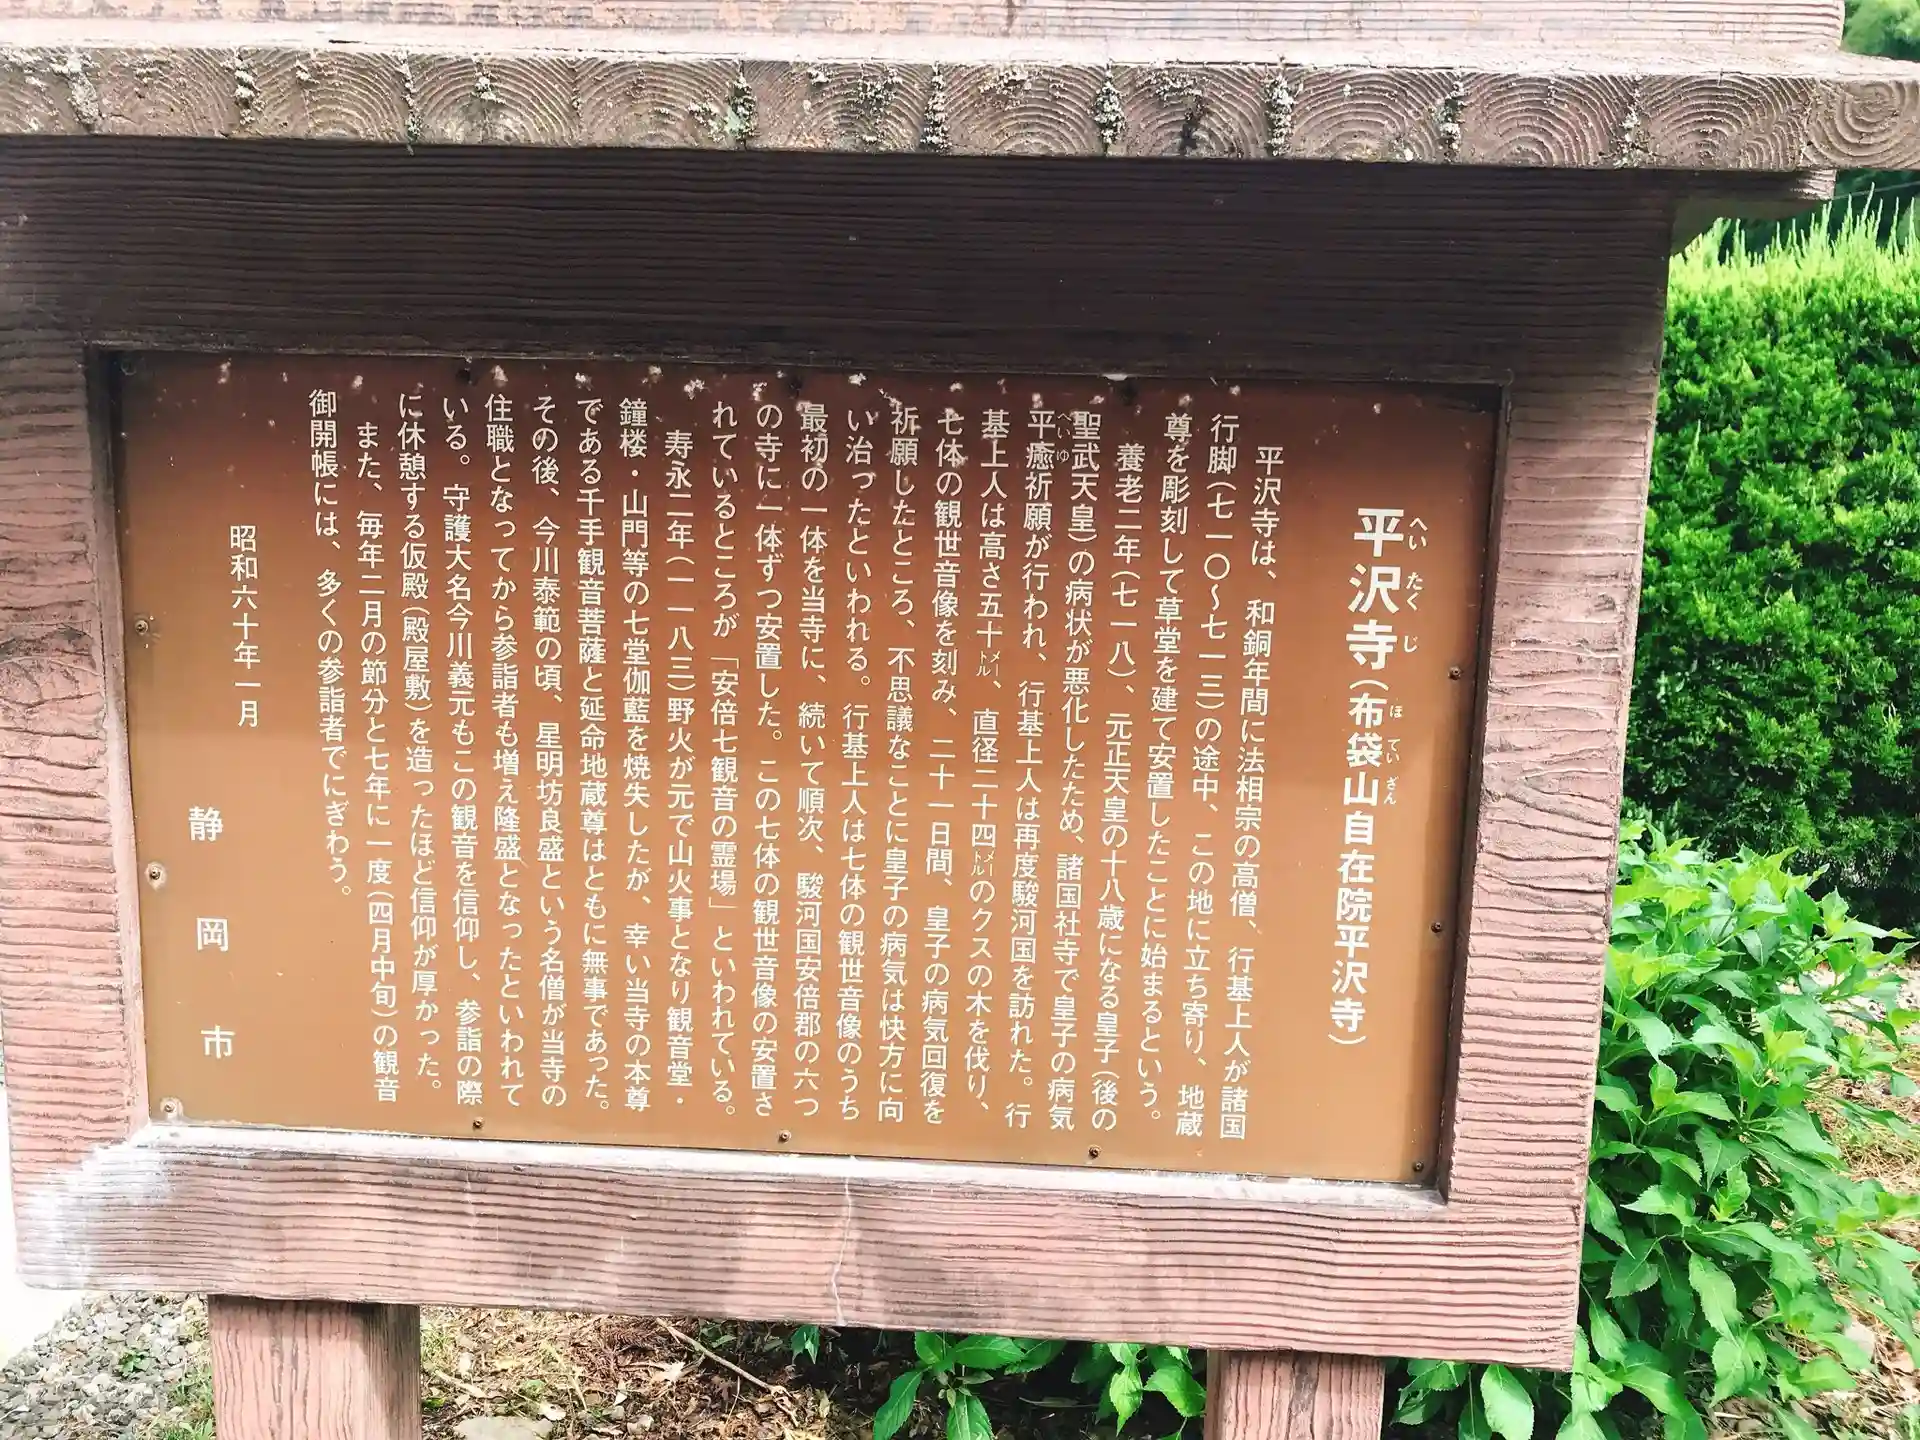 平沢寺(布袋山自在院平沢寺)
へいたくじ
ほていざん
平沢寺は、和銅年間に法相宗の高僧、行基上人が諸国
行脚(七一〇〜七一三)の途中、この地に立ち寄り、地蔵
尊を彫刻して草堂を建て安置したことに始まるという。
養老二年(七一八)、元正天皇の十八歳になる皇子(後の
聖武天皇)の病状が悪化したため、諸国社寺で皇子の病気
平癒祈願が行われ、行基上人は再度駿河国を訪れた。行
へいゆ
基上人は高さ五十メートル、直径二十四メートルのクスの木を伐り、
七体の観世音像を刻み、二十一日間、皇子の病気回復を
祈願したところ、不思議なことに皇子の病気は快方に向
い治ったといわれる。行基上人は七体の観世音像のうち
最初の一体を当寺に、続いて順次、駿河国安倍郡の六つ
の寺に一体ずつ安置した。この七体の観世音像の安置さ
れているところが「安倍七観音の霊場」といわれている。
寿永二年(一一八三)野火が元で山火事となり観音堂・
鐘楼・山門等の七堂伽藍を焼失したが、幸い当寺の本尊
である千手観音菩薩と延命地蔵尊はともに無事であった。
その後、今川泰範の頃、星明坊良盛という名僧が当寺の
住職となってから参詣者も増え隆盛となったといわれて
いる。守護大名今川義元もこの観音を信仰し、参詣の際
に休憩する仮殿(殿屋敷)を造ったほど信仰が厚かった。
また、毎年二月の節分と七年に一度(四月中旬)の観音
御開帳には、多くの参詣者でにぎわう。
昭和六十年一月
静岡市